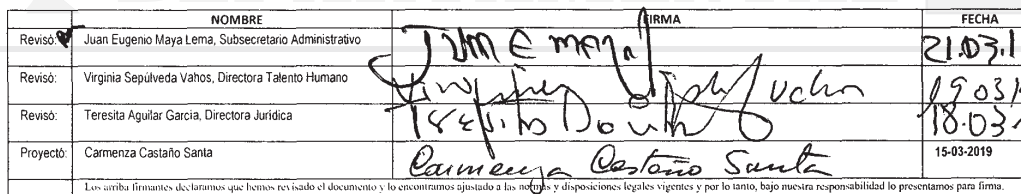 NOMBRE FIRMA FECHA
Revisó: Juan Eugenio Maya Lema, Subsecretario Administrativo JUAN E MAYA 21.03.1
Revisó: Virginia Sepúlveda Vahos, Directora Talento Humano 1903
Revisó: Teresita Aguilar García, Directora Jurídica 18.03
Proyectó: Carmenza Castaño Santa Carmenza Castaño Santa 15-03-2019
Los arriba firmantes declaramos que hemos revisado el documento y lo encontramos ajustado a las normas y disposiciones legales vigentes y por lo tanto, bajo nuestra responsabilidad lo presentamos para firma.